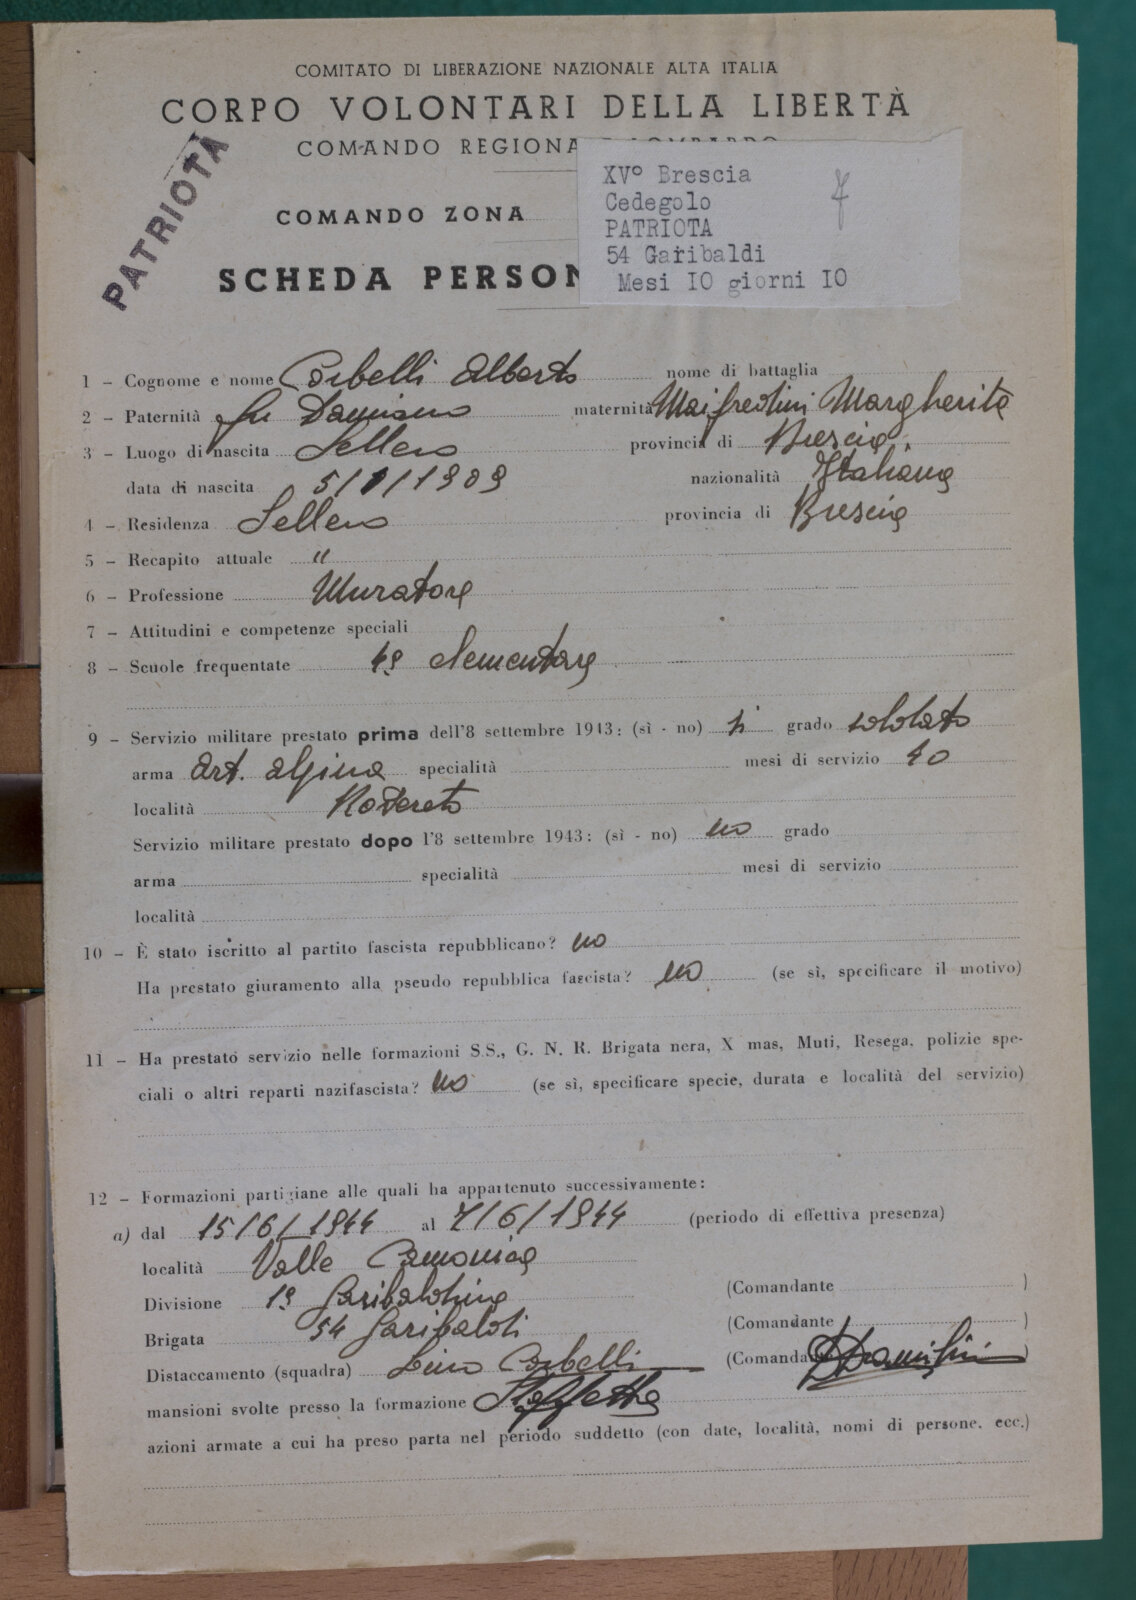 COMITATO DI LIBERAZIONE NAZIONALE ALTA ITALIA
CORPO VOLONTARI DELLA LIBERTÀ
COMANDO REGIONA
PATRIOTÀ
XV° Brescia
Cedegolo
PATRIOTA
54 Garibaldi
Mesi IO giorni IO
7
COMANDO ZONA
SCHEDA PERSON
1 - Cognome e nome Corbelli Alberto nome di battaglia
2 - Paternità fu Damiano maternità Maifredini Margherita
3 - Luogo di nascita Sellero provincia di Brescia
data di nascita 5/1/1909 nazionalità Italiana
4 - Residenza Sellero provincia di Brescia
5 - Recapito attuale "
6 - Professione Muratore
7 - Attitudini e competenze speciali
8 - Scuole frequentate 4ª elementare
9 - Servizio militare prestato prima dell'8 settembre 1943: (sì - no) si grado soldato
arma art. alpina specialità mesi di servizio 40
località Rovereto
Servizio militare prestato dopo l'8 settembre 1943: (sì - no) no grado
arma specialità mesi di servizio
località
10 - È stato iscritto al partito fascista repubblicano? no
Ha prestato giuramento alla pseudo repubblica fascista? no (se sì, specificare il motivo)
11 - Ha prestato servizio nelle formazioni S.S., G. N. R. Brigata nera, X mas, Muti, Resega, polizie spe-
ciali o altri reparti nazifascista? no (se sì, specificare specie, durata e località del servizio)
12 - Formazioni partigiane alle quali ha appartenuto successivamente:
a) dal 15/6/1944 al 7/6/1944 (periodo di effettiva presenza)
località Valle Camonica
Divisione 1ª Garibaldina (Comandante )
Brigata 54 Garibaldi (Comandante )
Distaccamento (squadra) Lino Corbelli (Comandante )
mansioni svolte presso la formazione Staffetta
azioni armate a cui ha preso parta nel periodo suddetto (con date, località, nomi di persone, ecc.)